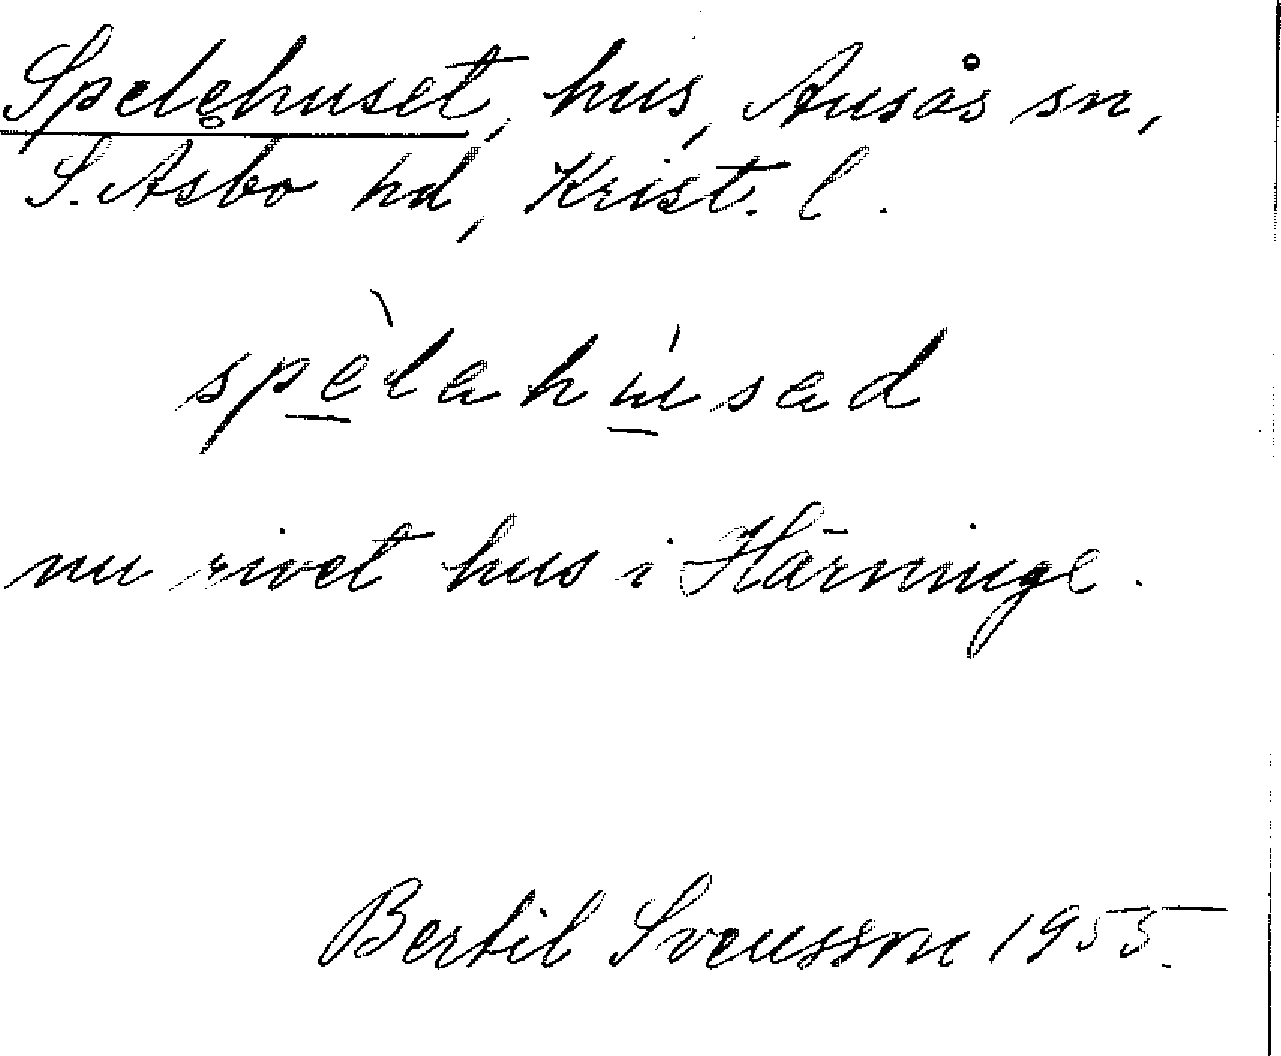 Spelehuset, hus, Ausås sn,
S. Åsbo hd, Krist. l.
spèlahúsad
nu rivet hus i Härninge.
Bertil Svensson 1955.